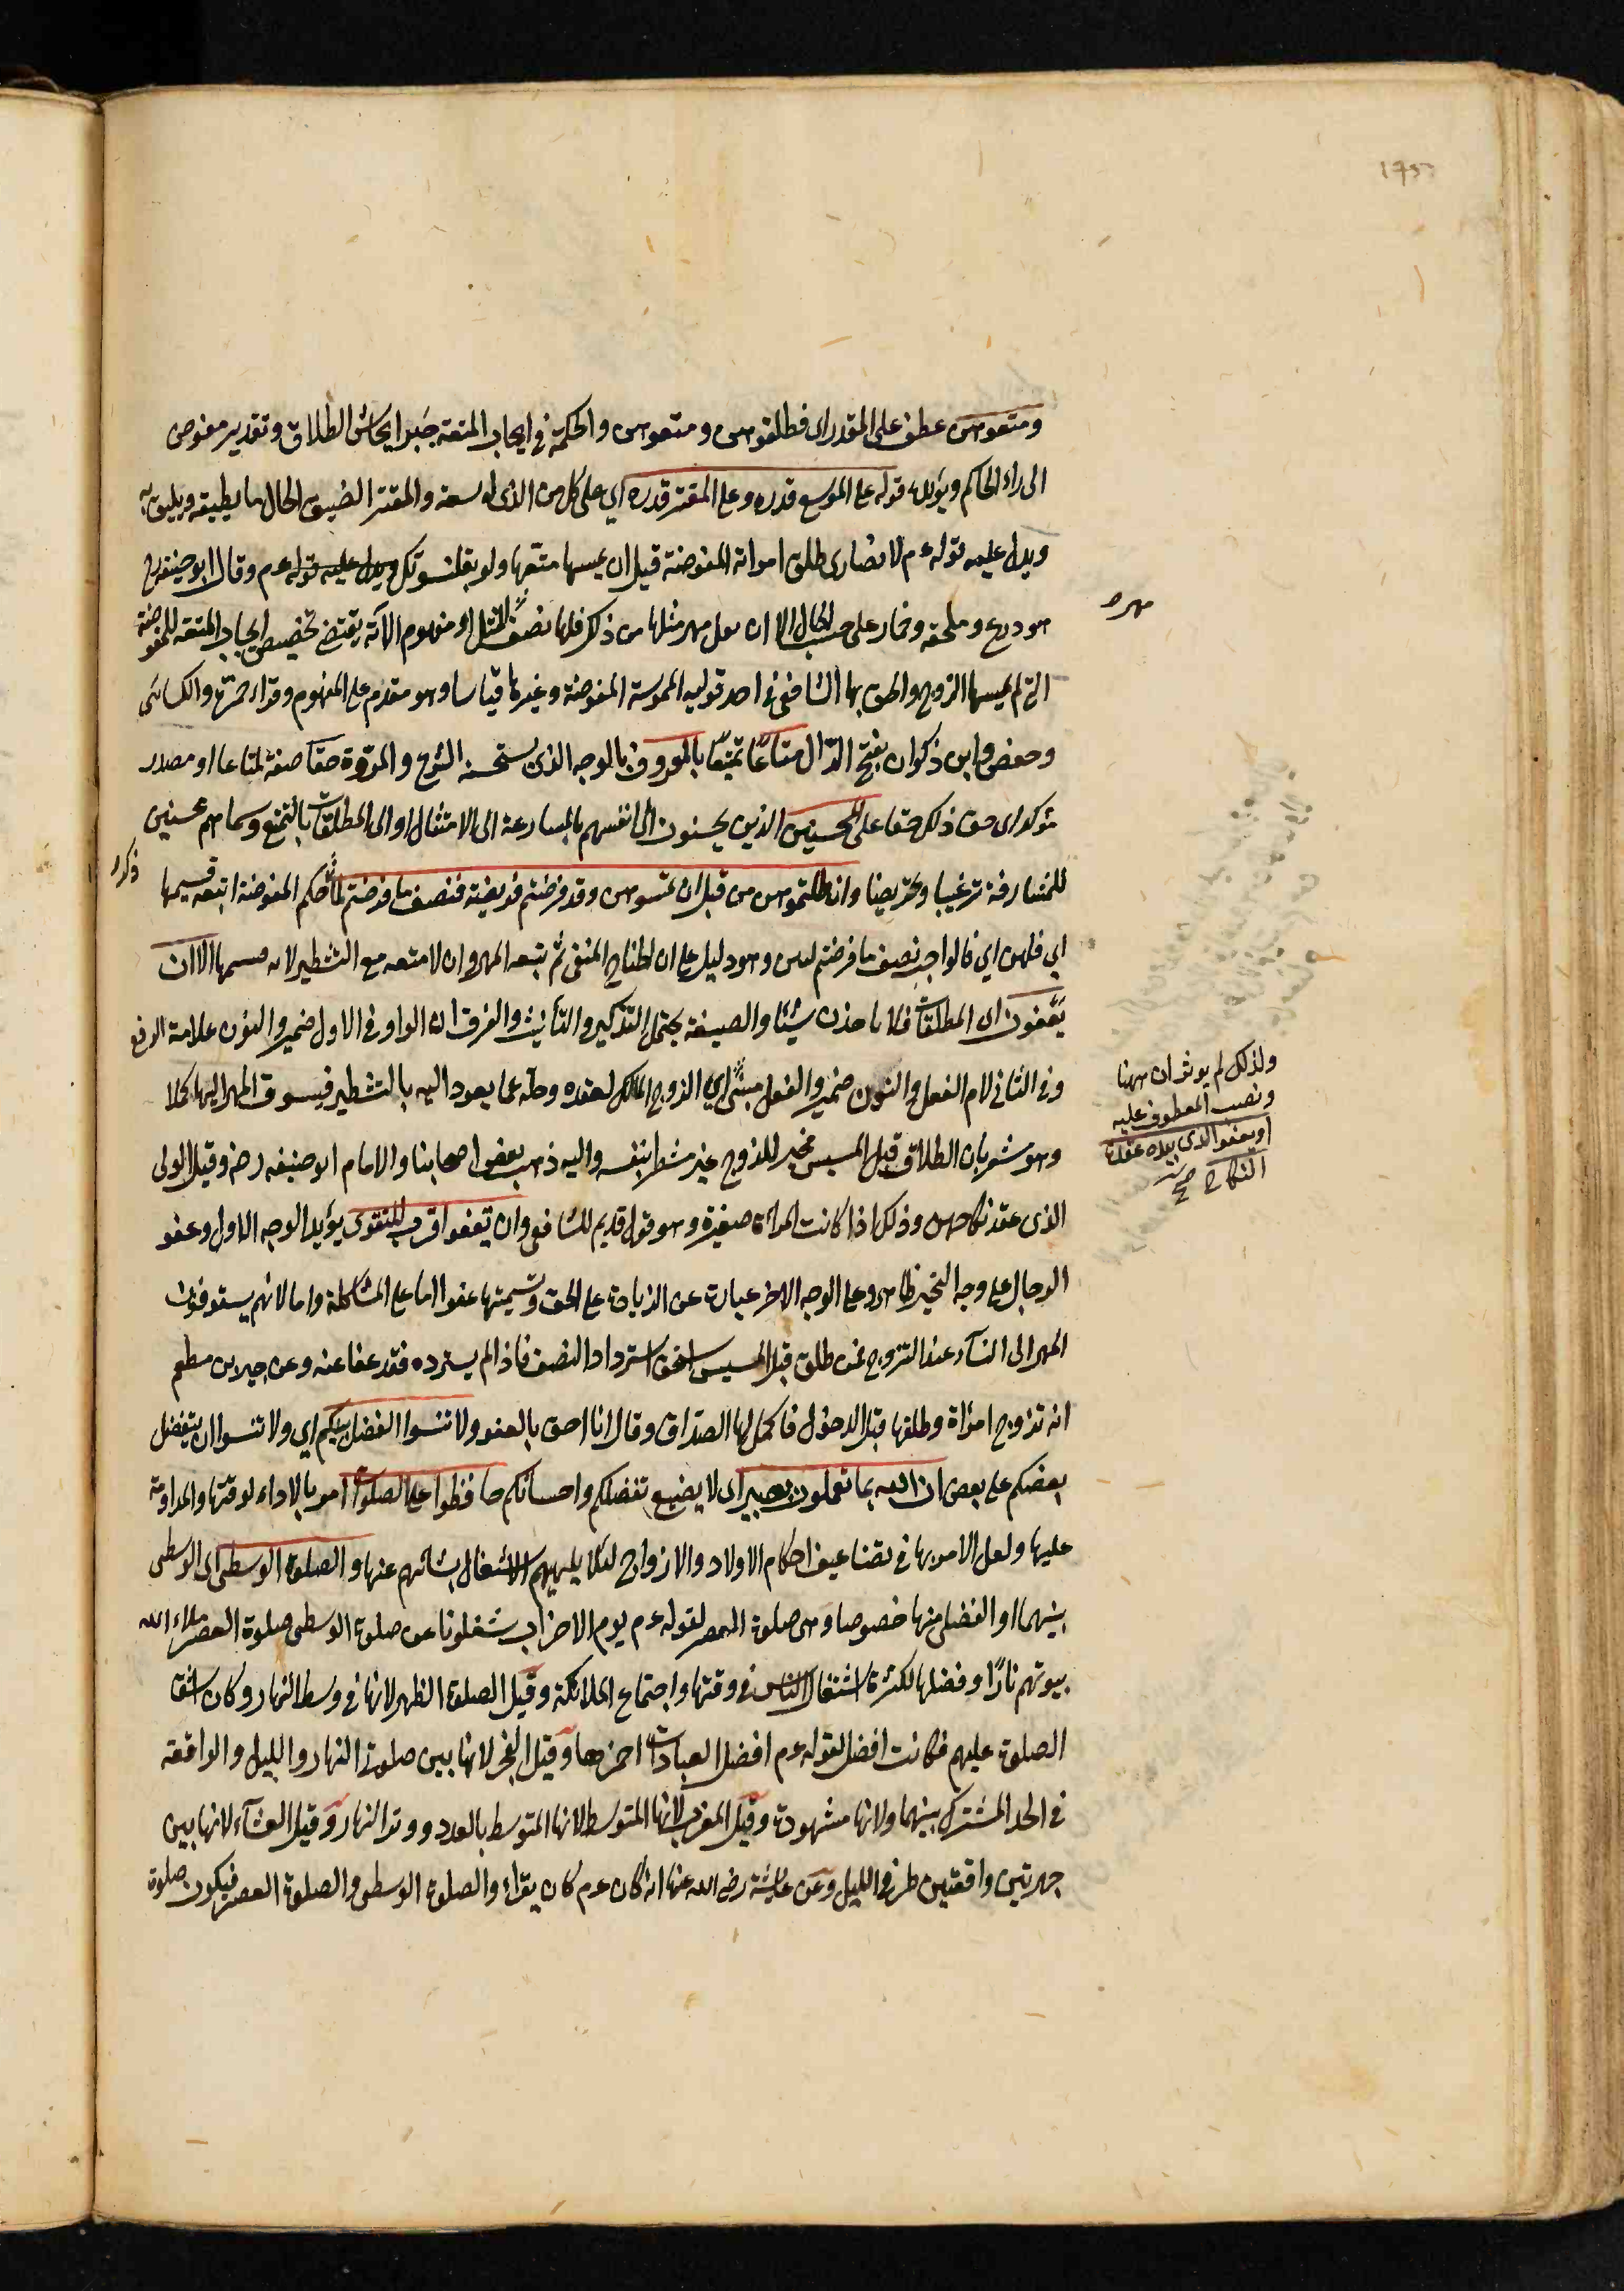 ومتعوهن عطف على المقدر اى فطلقوهن ومتعوهن والحكمة في ايجاب المتعة جبر ايحاش الطلاق وتقدير مفوض
الى راى الحاكم ويؤيده قوله على الموسع قدره وعلى المقتر قدره اي على كل من الذى له سعة والمقتر الضيق الحال ما يطيقه ويليق به
ويدل عليه قوله ءم لانصارى طلق امراته المفوضة قبل ان يمسها متعها ولو بقلنسوتك ويدل عليه قوله ءم وقال ابو حنيفة رح
هو درع وملحفة وخمار على حسب الحال الا ان يقل مهر مثلها من ذلك فلها نصف المثل ومفهوم الآية يقتضى تخصيص ايجاب المتعة للمفوضة
التى لم يمسها الزوج والحق بها الشافعى في احد قوليه الممسوسة المفوضة وغيرها قياسا وهو مقدم على المفهوم وقراء حمزة والكسائى
وحفص وابن ذكوان بفتح الدال متاعًا تمتيعًا بالمعروف بالوجه الذى يستحسنه الشرع والمروة حقا صفة لمتاعا او مصدر
مؤكد اى حق ذلك حقا على المحسنين الذين يحسنون الى انفسهم بالمسارعة الى الامتثال او الى المطلقات بالتمتيع وسماهم محسنين
للمشارفة ترغيبا وتحريضا وان طلقتموهن من قبل ان تمسوهن وقد فرضتم لهن فريضة فنصف ما فرضتم لما ذكر حكم المفوضة اتبعه قسيمها
اي فلهن اي فالواجب نصف ما فرضتم لهن وهو دليل على ان الجناح المنفى ثم تبعة المهر وان لا متعة مع التشطير لانه قسيمها الا ان
يعفون اى المطلقات فلا ياخذن شيئا والصيغة يحتمل التذكير والتأنيث والفرق ان الواو في الاول ضمير والنون علامة الرفع
وفي الثاني لام الفعل والنون ضمير والفعل مبنى اي الزوج المالك لعقده وحله عما يعود اليه بالتشطير فيسوق المهر اليها كملا
وهو مشعر بان الطلاق قبل المسيس مخير للزوج غير مشطر بنفسه واليه ذهب بعض اصحابنا والامام ابو حنيفه رض وقيل الولى
الذى عقد نكاحهن وذلك اذا كانت المراة صغيرة وهو قول قديم للشافعى وان تعفوا اقرب للتقوى يؤيد الوجه الاول وعفو
الرجال على وجه التخيير ظاهر وعلى الوجه الاخر عبارة عن الزيادة على الحق وتسميتها عفوا اما على المشاكلة واما لانهم يسوقون
المهر الى النسآء عند التزوج فمن طلق قبل المسيس استحق استرداد النصف فاذا لم يسترده فقد عفا عنه وعن جبير بن مطعم
انه تزوج امراة وطلقها قبل الدخول فاكمل لها الصداق وقال انا احق بالعفو ولا تنسوا الفضل بينكم اي ولا تنسوا ان يتفضل
بعضكم على بعض ان الله بما تعملون بصير اى لا يضيع تفضلكم واحسانكم حافظوا على الصلوات امر بالاداء لوقتها والمداومة
عليها ولعل الامر بها في تضاعيف احكام الاولاد والازواج لئلا يلهيهم الاشتغال بشانهم عنها والصلوة الوسطى اى الوسطى
بينهما او الفضلى منها خصوصا وهى صلوة العصر لقوله ءم يوم الاحزاب شغلونا عن صلوة الوسطى صلوة العصر ملاء الله
بيوتهم نارًا وفضلها لكثرة اشتغال الناس في وقتها واجتماع الملائكة وقيل الصلوة الظهر لانها في وسط النهار وكان اشق
الصلوة عليهم فكانت افضل لقوله ءم افضل العبادات احمزها وقيل الفجر لانها بين صلوتى النهار والليل والواقعة
في الحد المشترك بينهما ولانها مشهودة وقيل المغرب لانها المتوسط لانها المتوسط بالعدد ووتر النهار وقيل العشآء لانها بين
جهرتين واقعتين طرفى الليل وعن عائشة رضى الله عنها انه كان ءم كان يقراء والصلوة الوسطى والصلوة العصر فيكون صلوة
ذكر
ولذلك لم يوثر ان ههنا
ونصب المعطوف عليه
او يعفو الذى بيده عقدة
النكاح صح